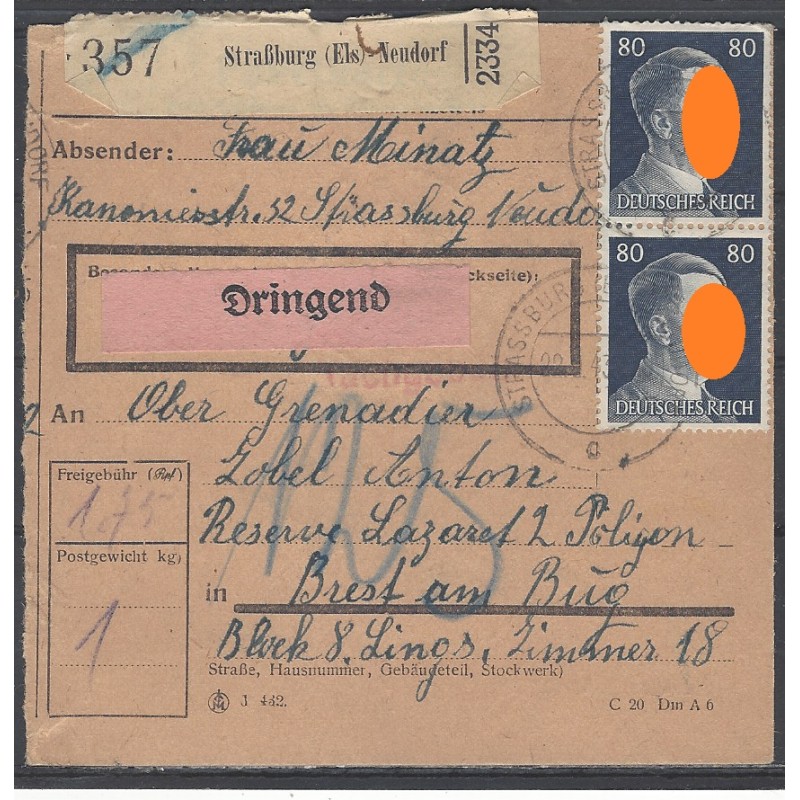 357 Straßburg (Els)-Neudorf 2334
80 80
DEUTSCHES REICH
80 80
DEUTSCHES REICH
Absender: Frau Minatz
Kanoniesstr. 32 Strassburg Neudo
Besondere ckseite):
Dringend
STRASSBURG
An Ober Grenadier
Zobel Anton
Freigebühr (Rpf)
175
Reserve Lazaret 2 Poligon
Postgewicht kg)
1
in Brest am Bug
Block 8, Lings, Zimmer 18
Straße, Hausnummer, Gebäudeteil, Stockwerk)
J 432. C 20 Din A 6